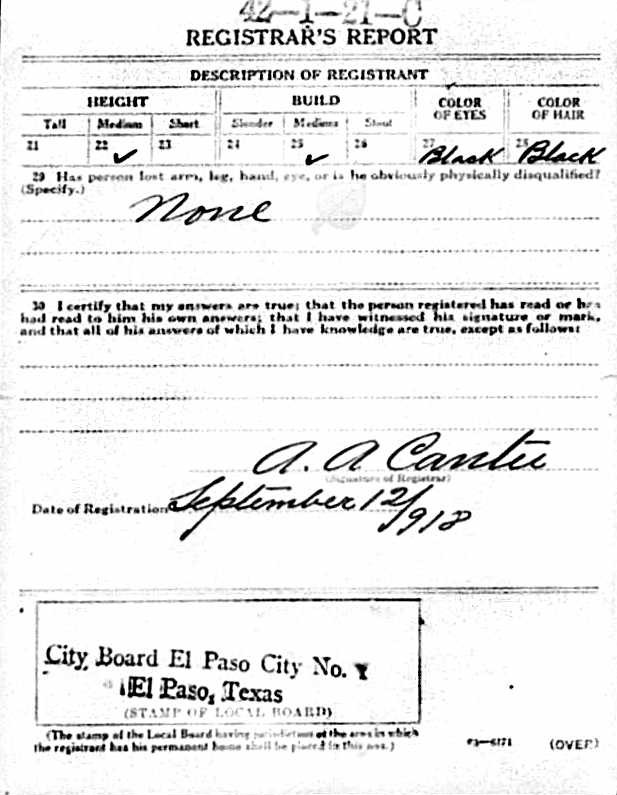 42-1-21-C
REGISTRAR'S REPORT
DESCRIPTION OF REGISTRANT
HEIGHT BUILD COLOR OF EYES COLOR OF HAIR
Tall Medium Short Slender Medium Stout
21 22 ✓ 23 24 25 ✓ 26 27 Black 28 Black
29 Has person lost arm, leg, hand, eye, or is he obviously physically disqualified?
(Specify.)
None
30 I certify that my answers are true; that the person registered has read or has
had read to him his own answers; that I have witnessed his signature or mark,
and that all of his answers of which I have knowledge are true, except as follows:
A. A Cantu
(Signature of Registrar)
Date of Registration September 12/1918
City Board El Paso City No. 1
El Paso, Texas
(STAMP OF LOCAL BOARD)
(The stamp of the Local Board having jurisdiction of the area in which
the registrant has his permanent home shall be placed in this box.)
03—6171 (OVER)